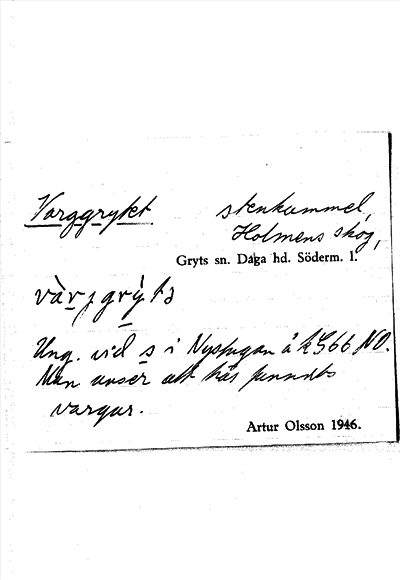 Varggrytet stenkummel,
Holmens skog,
Gryts sn. Daga hd. Söderm. l.
vàrjgrỳtə
Ung. vid s i Nystugan å k G66 NO.
Man anser att här funnits
vargar.
Artur Olsson 1946.